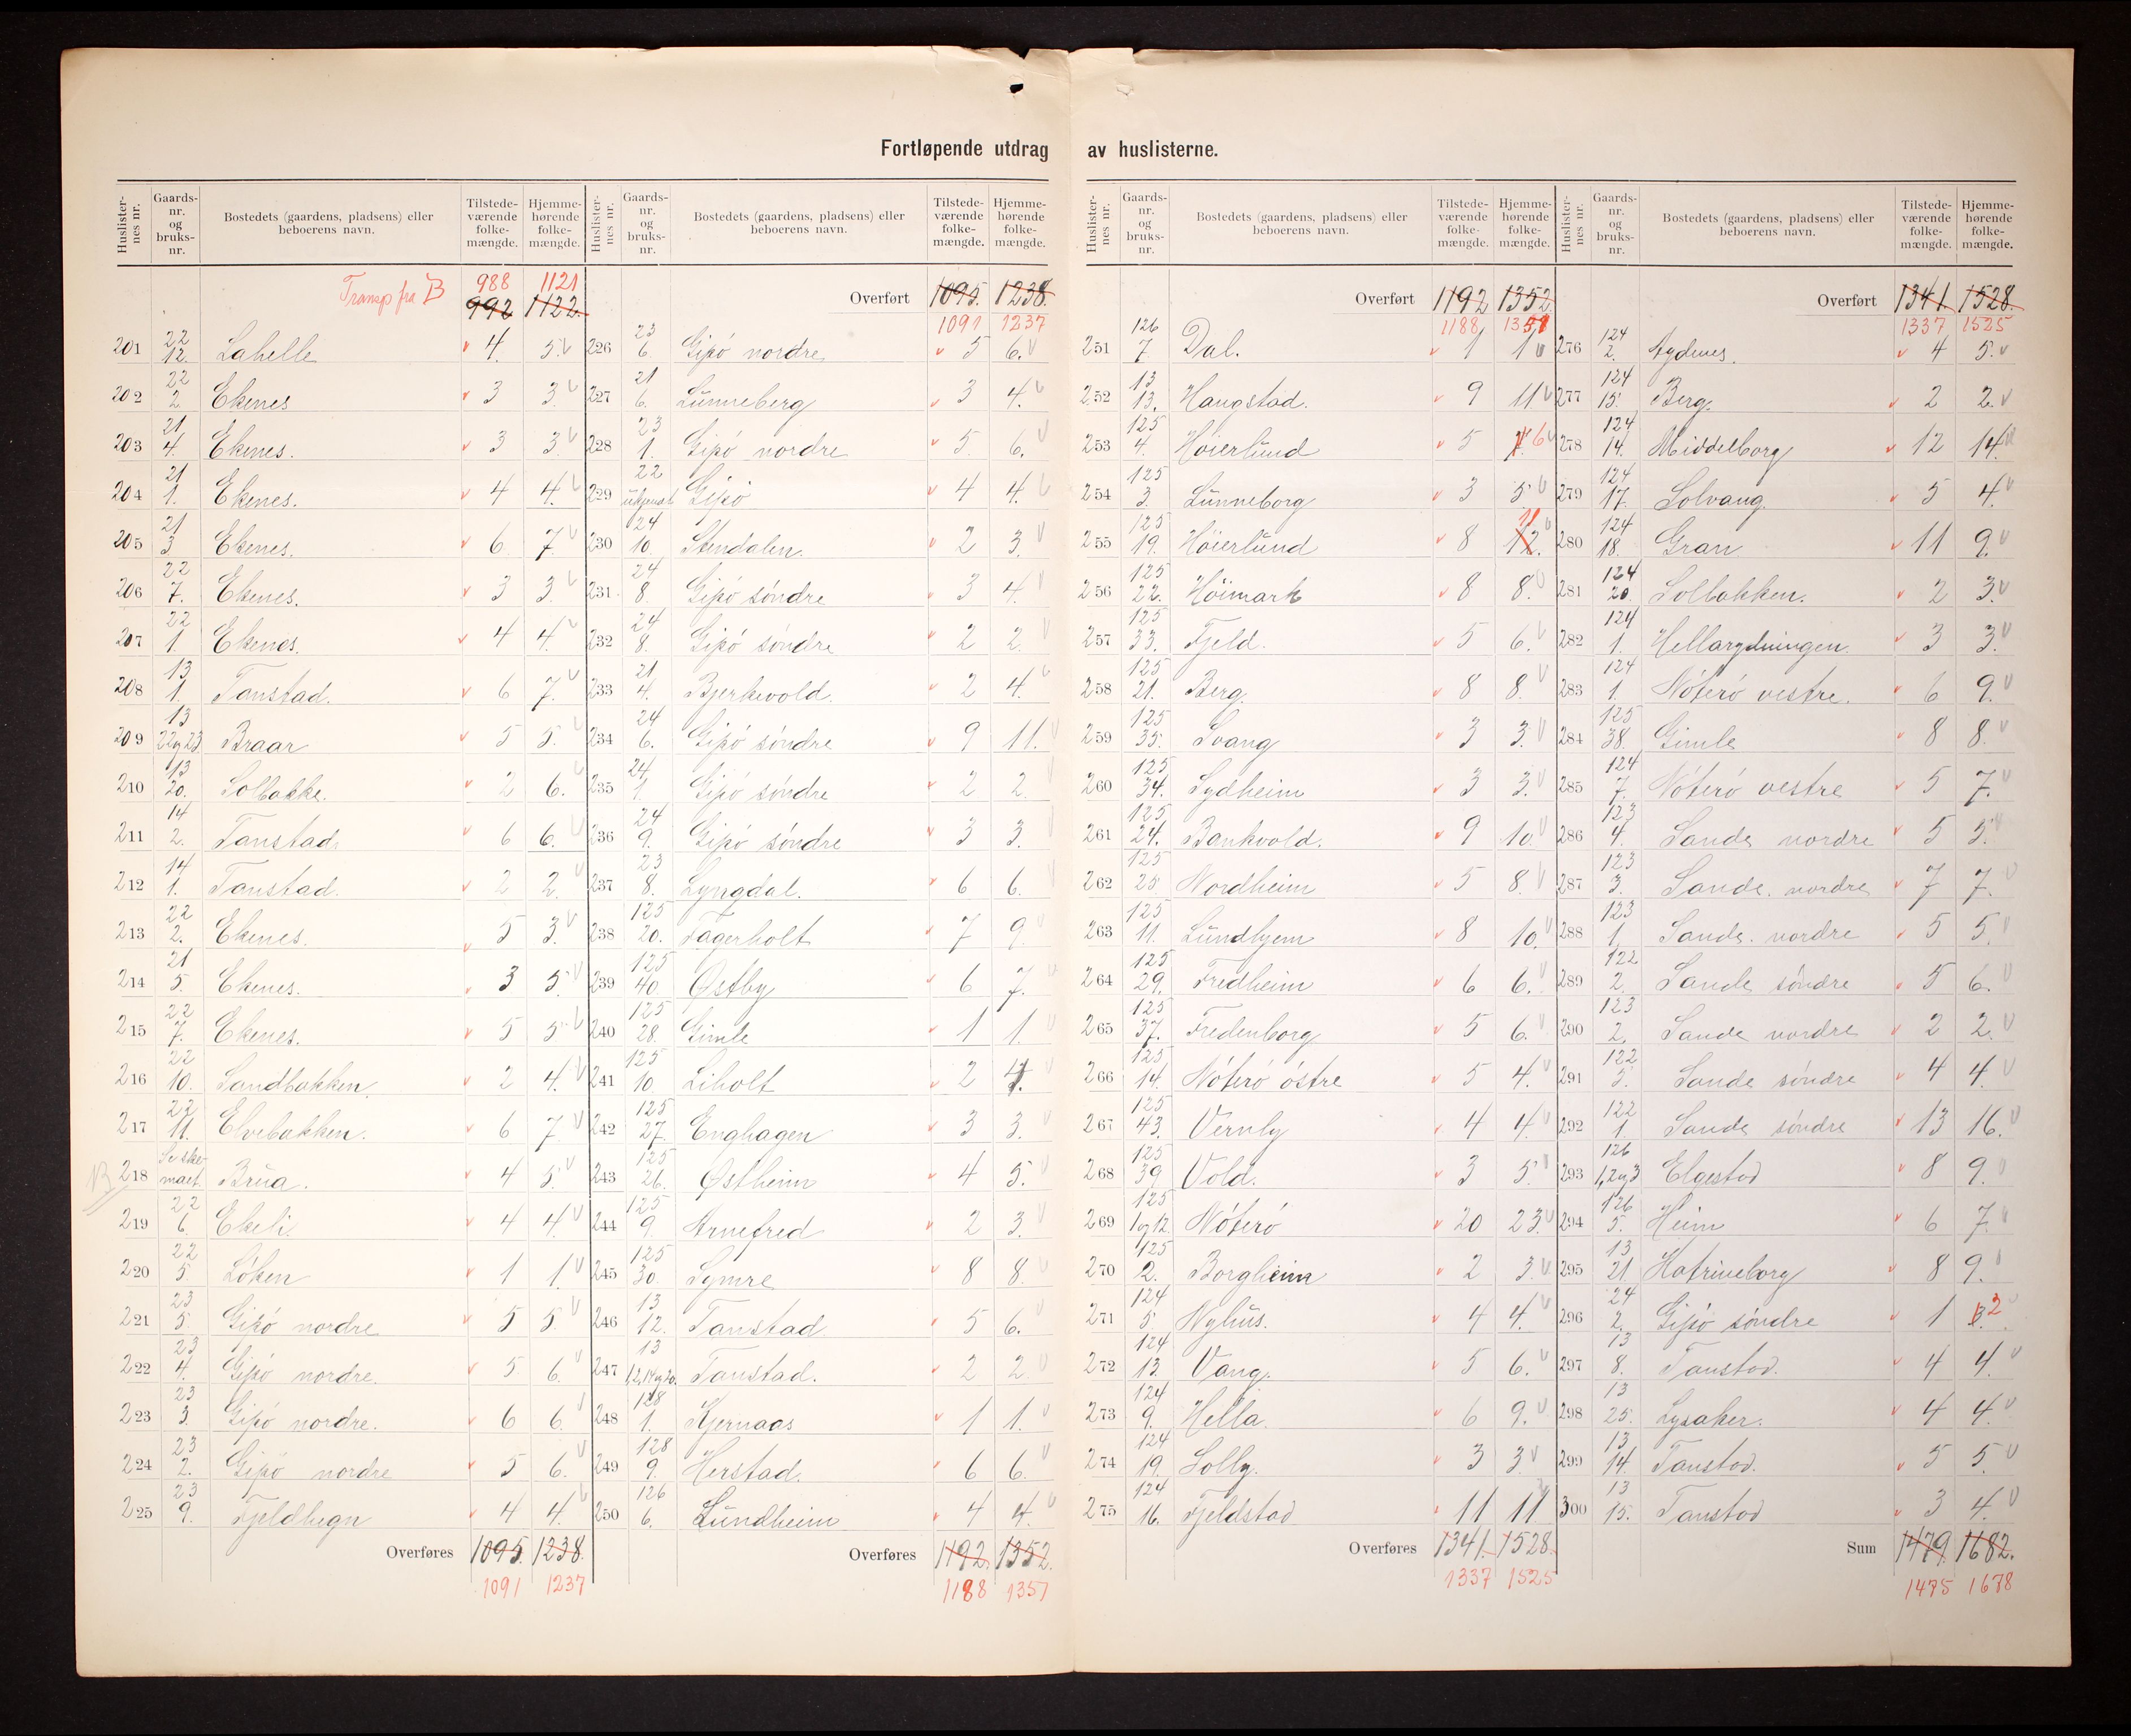 Fortløpende utdrag av huslisterne.
Huslister-nes nr. Gaards-nr. og bruks-nr. Bostedets (gaardens, pladsens) eller beboerens navn. Tilstede-værende folke-mængde. Hjemme-hørende folke-mængde.
Transp fra B 988 1121
992 1122.
201 22 12. Lahelle 4. 5.
202 22 2 Ekenes 3 3.
203 21 4. Ekenes. 3 3.
204 21 1. Ekenes. 4 4.
205 21 3 Ekenes. 6. 7.
206 22 7. Ekenes. 3 3.
207 22 1. Ekenes. 4 4.
208 13 1. Tanstad. 6 7.
209 13 22og23 Braar 5 5.
210 13 20. Solbakke. 2 6.
211 14 2. Tanstad. 6 6.
212 14 1. Tanstad. 2 2.
213 22 2. Ekenes. 5 3.
214 21 5. Ekenes. 3 5.
215 22 7. Ekenes. 5 5.
216 22 10. Sandbakken. 2 4.
217 22 11. Elvebakken. 6 7.
NB 218 Se ske-maet. Brua. 4 5.
219 22 6. Ekeli. 4 4.
220 22 5. Löken 1 1.
221 23 5. Gipö nordre 5 5.
222 23 4. Gipö nordre. 5 6.
223 23 3. Gipö nordre. 6 6.
224 23 2. Gipö nordre 5 6.
225 23 9. Fjeldhegn 4 4.
Overføres 1095. 1238.
1091 1237
Huslister-nes nr. Gaards-nr. og bruks-nr. Bostedets (gaardens, pladsens) eller beboerens navn. Tilstede-værende folke-mængde. Hjemme-hørende folke-mængde.
Overført 1095. 1238.
1091 1237
226 23 6. Gipö nordre 5 6.
227 21 6. Lunneberg 3 4.
228 23 1. Gipö nordre 5. 6.
229 22 ukjendt Gipö 4 4.
230 24 10. Stendalen. 2 3.
231 24 8. Gipö söndre 3 4.
232 24 8. Gipö söndre 2 2.
233 21 4. Bjerkvold. 2 4.
234 24 6. Gipö söndre 9 11.
235 24 1. Gipö söndre 2 2.
236 24 9. Gipö söndre 3 3.
237 23 8. Lyngdal. 6 6.
238 125 20. Fagerholt 7 9.
239 125 40 Østby 6 7.
240 125 28. Gimle 1 1.
241 125 10 Liholt 2 4.
242 125 27. Enghagen 3 3.
243 125 26. Østheim 4 5.
244 125 9. Arnefred 2 3.
245 125 30. Symre 8 8.
246 13 12. Tanstad 5 6.
247 13 1,2,14og20. Tanstad. 2 2.
248 128 1. Kjernaas 1 1.
249 128 9. Herstad. 6 6.
250 126 6. Lundheim 4 4.
Overføres 1192. 1352.
1188 1351
Huslister-nes nr. Gaards-nr. og bruks-nr. Bostedets (gaardens, pladsens) eller beboerens navn. Tilstede-værende folke-mængde. Hjemme-hørende folke-mængde.
Overført 1192 1352.
1188 1351
251 126 7. Dal. 1 1
252 13 13. Haugstad. 9 11
253 125 4. Höierlund 5 6
254 125 3. Lunneborg 3 5.
255 125 19. Höierlund 8 12. 11
256 125 22. Höimark 8 8.
257 125 33. Fjeld. 5 6.
258 125 21. Berg. 8 8.
259 125 35. Svang 3 3.
260 125 34. Sydheim 3 3.
261 125 24. Bankvold. 9 10.
262 125 25. Nordheim 5 8.
263 125 11. Lundhjem 8 10.
264 125 29. Fredheim 6 6.
265 125 37. Fredenborg 5 6.
266 125 14. Nöterö östre 5 4.
267 125 43. Vernby 4 4.
268 125 39 Vold. 3 5.
269 125 1og12. Nöterö 20 23.
270 125 2. Borgheim 2 3.
271 124 5. Nyhus. 4 4.
272 124 13. Vang. 5 6.
273 124 9. Hella. 6 9.
274 124 19. Solby. 3 3.
275 124 16. Fjeldstad 11 11
Overføres 1341. 1528.
1337 1525
Huslister-nes nr. Gaards-nr. og bruks-nr. Bostedets (gaardens, pladsens) eller beboerens navn. Tilstede-værende folke-mængde. Hjemme-hørende folke-mængde.
Overført 1341. 1528.
1337 1525
276 124 2. 4 5.
277 124 15. Berg. 2 2.
278 124 14. Middelborg 12 14.
279 124 17. Solvang. 5 4.
280 124 18. Gran 11 9.
281 124 20. Solbakken. 2 3.
282 124 1. Hellarydningen. 3 3.
283 124 1. Nöterö vestre. 6 9.
284 125 38. Gimle 8 8.
285 124 7. Nöterö vestre 5 7.
286 123 4. Sande nordre 5 5.
287 123 3. Sande. nordre 7 7.
288 123 1. Sande. nordre 5 5.
289 122 2. Sande söndre 5 6.
290 123 2. Sande nordre 2 2.
291 122 5. Sande söndre 4 4.
292 122 1 Sande söndre 13 16.
293 126 1,2og3 Elgestad 8 9.
294 126 5. Heim 6 7.
295 13 21. Hatrineborg 8 9.
296 24 2. Gipö söndre 1 2
297 13 8. Tanstad. 4 4.
298 13 25. Lysaker. 4 4.
299 13 14. Tanstad. 5 5.
300 13 15. Tanstad 3 4.
Sum 1479. 1682.
1475 1678